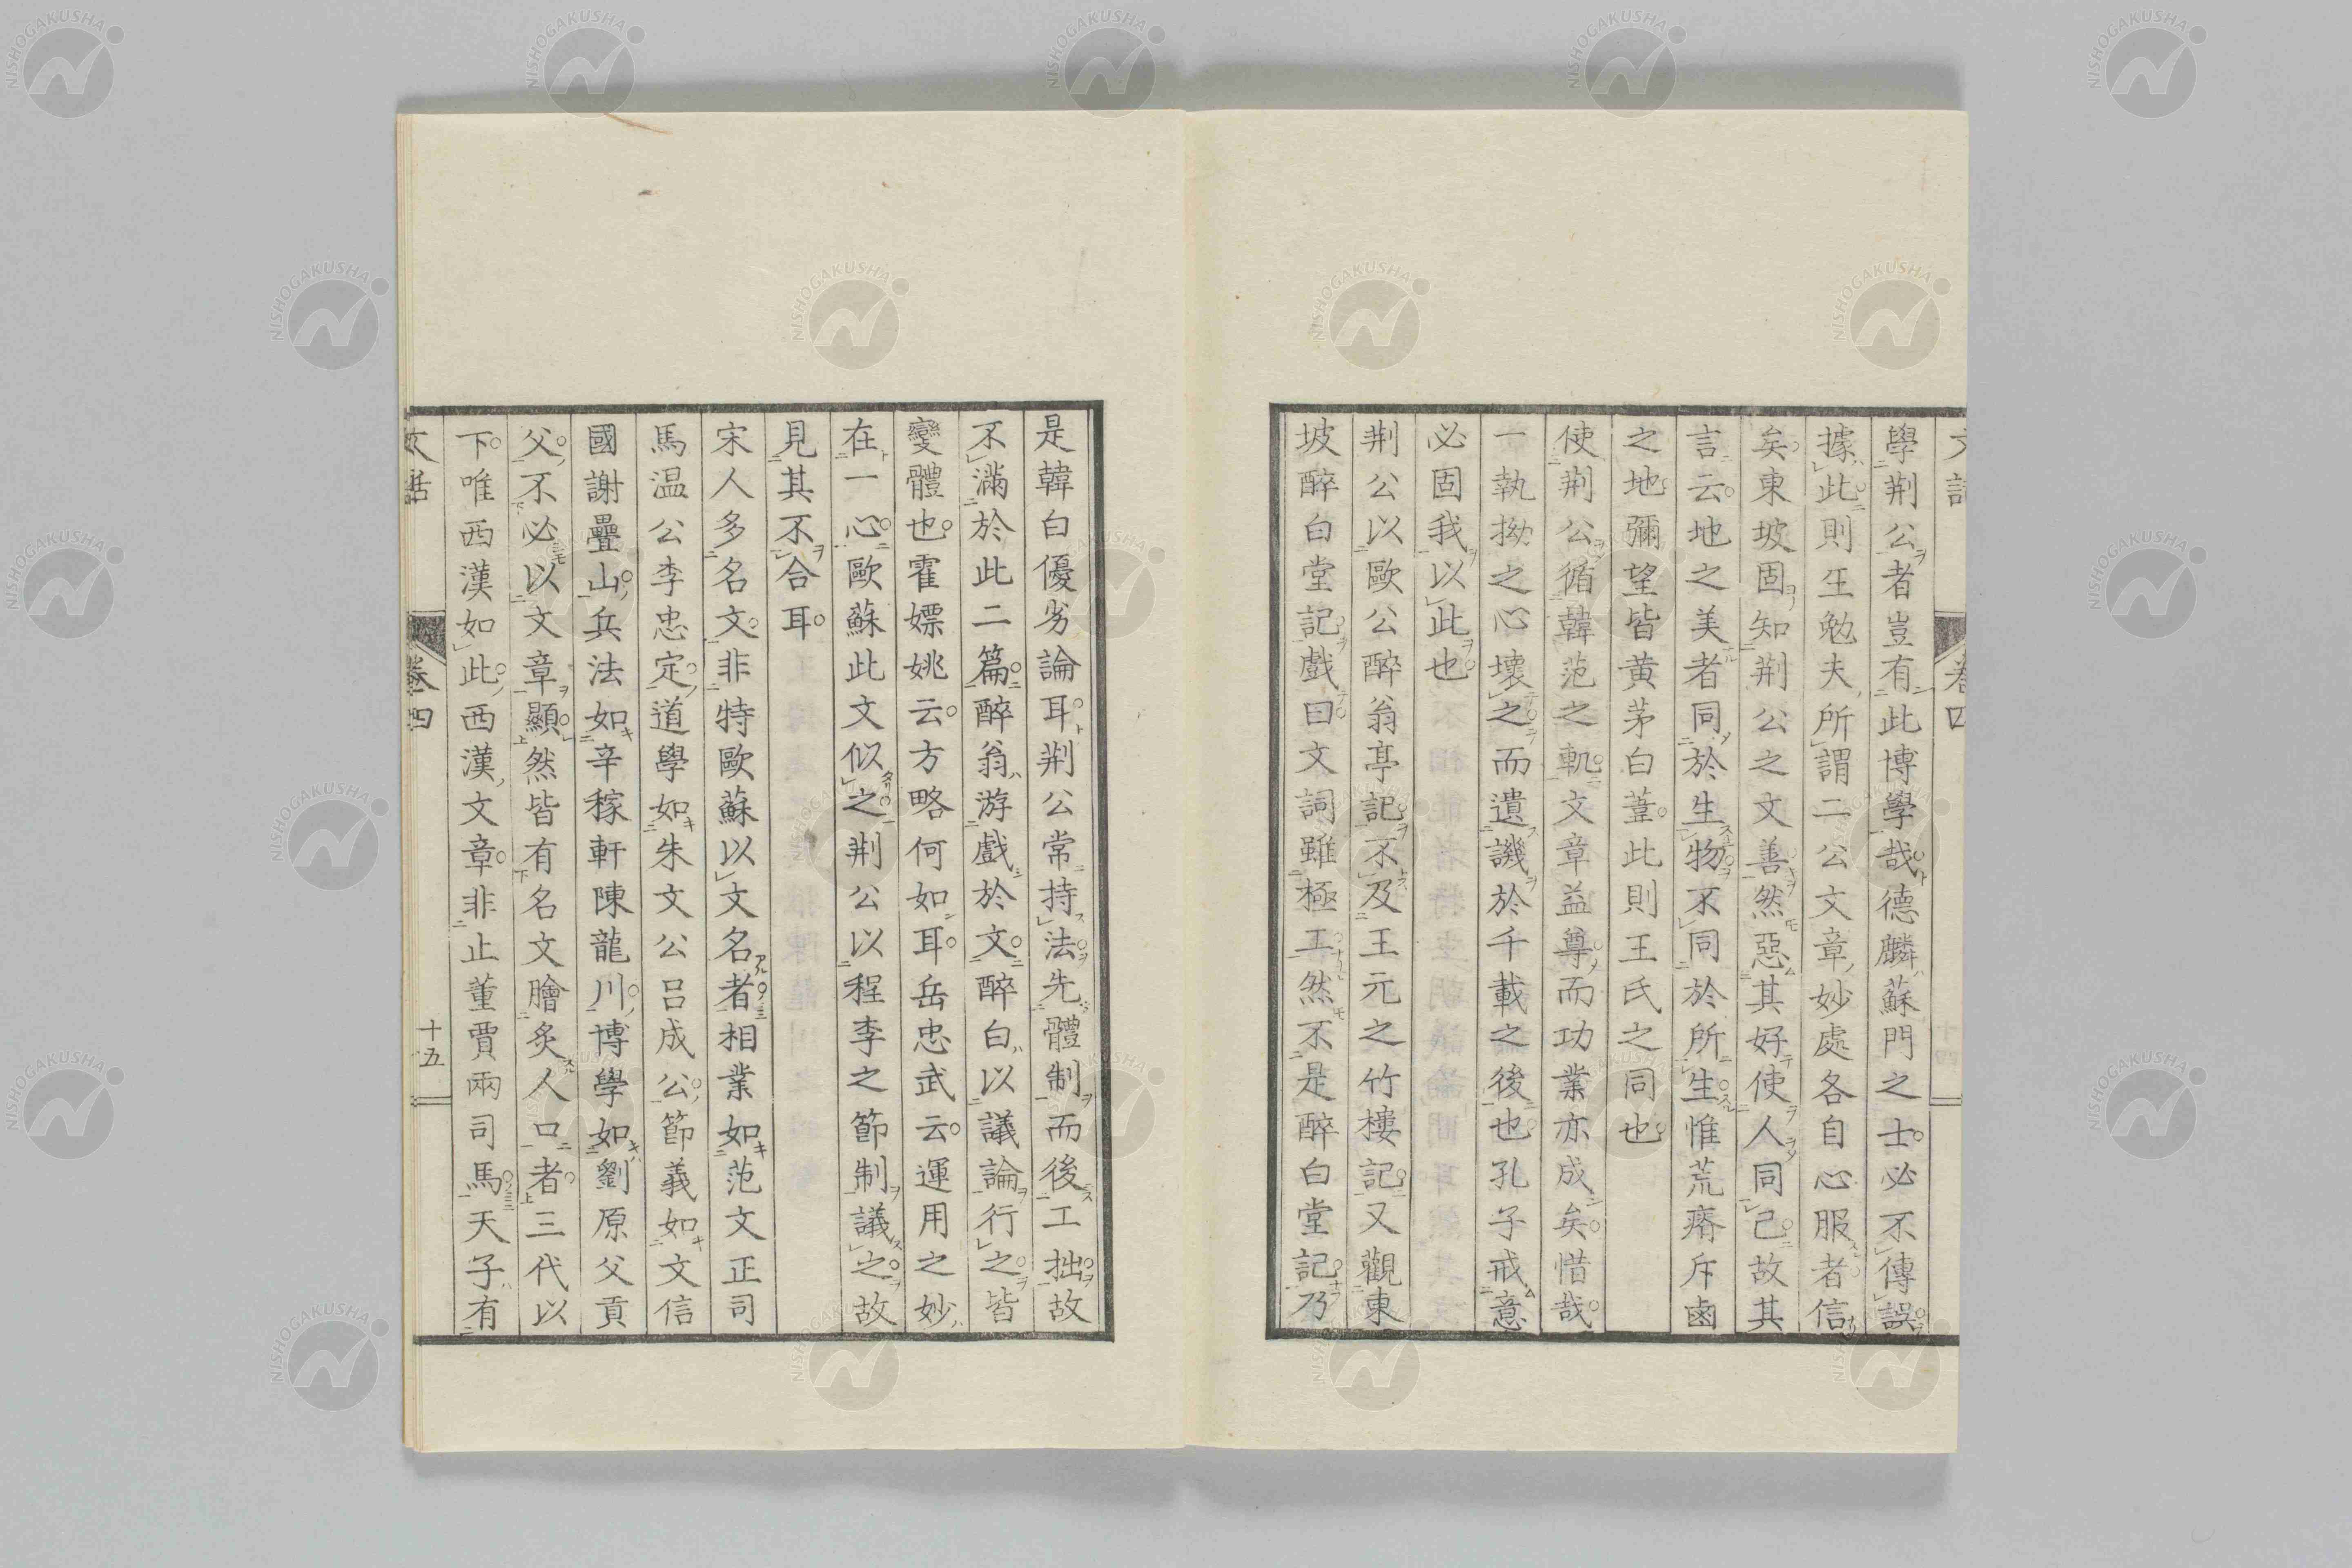 學荆公者豈有此博學哉德麟蘇門之士必不傳誤
據此則王勉夫所謂二公文章妙處各自心服者信
矣東坡固知荆公之文善然惡其好使人同己故其
言云地之美者同於生物不同於所生惟荒瘠斥鹵
之地彌望皆黄茅白葦此則王氏之同也
使荆公循韓范之軌文章益尊而功業亦成矣惜哉
一執拗之心壞之而遺譏於千載之後也孔子戒意
必固我以此也
荆公以歐公醉翁亭記不及王元之竹樓記又觀東
坡醉白堂記戲曰文詞雖極工然不是醉白堂記乃
是韓白優劣論耳荆公常持法先體制而後工拙故
不滿於此二篇醉翁游戲於文醉白以議論行之皆
變體也霍嫖姚云方略何如耳岳忠武云運用之妙
在一心歐蘇此文似之荆公以程李之節制議之故
見其不合耳
宋人多名文非特歐蘇以文名者相業如范文正司
馬温公李忠定道學如朱文公呂成公節義如文信
國謝疊山兵法如辛稼軒陳龍川博學如劉原父貢
父不必以文章顯然皆有名文膾炙人口者三代以
下唯西漢如此西漢文章非止董賈兩司馬天子有
文話 卷四 十五